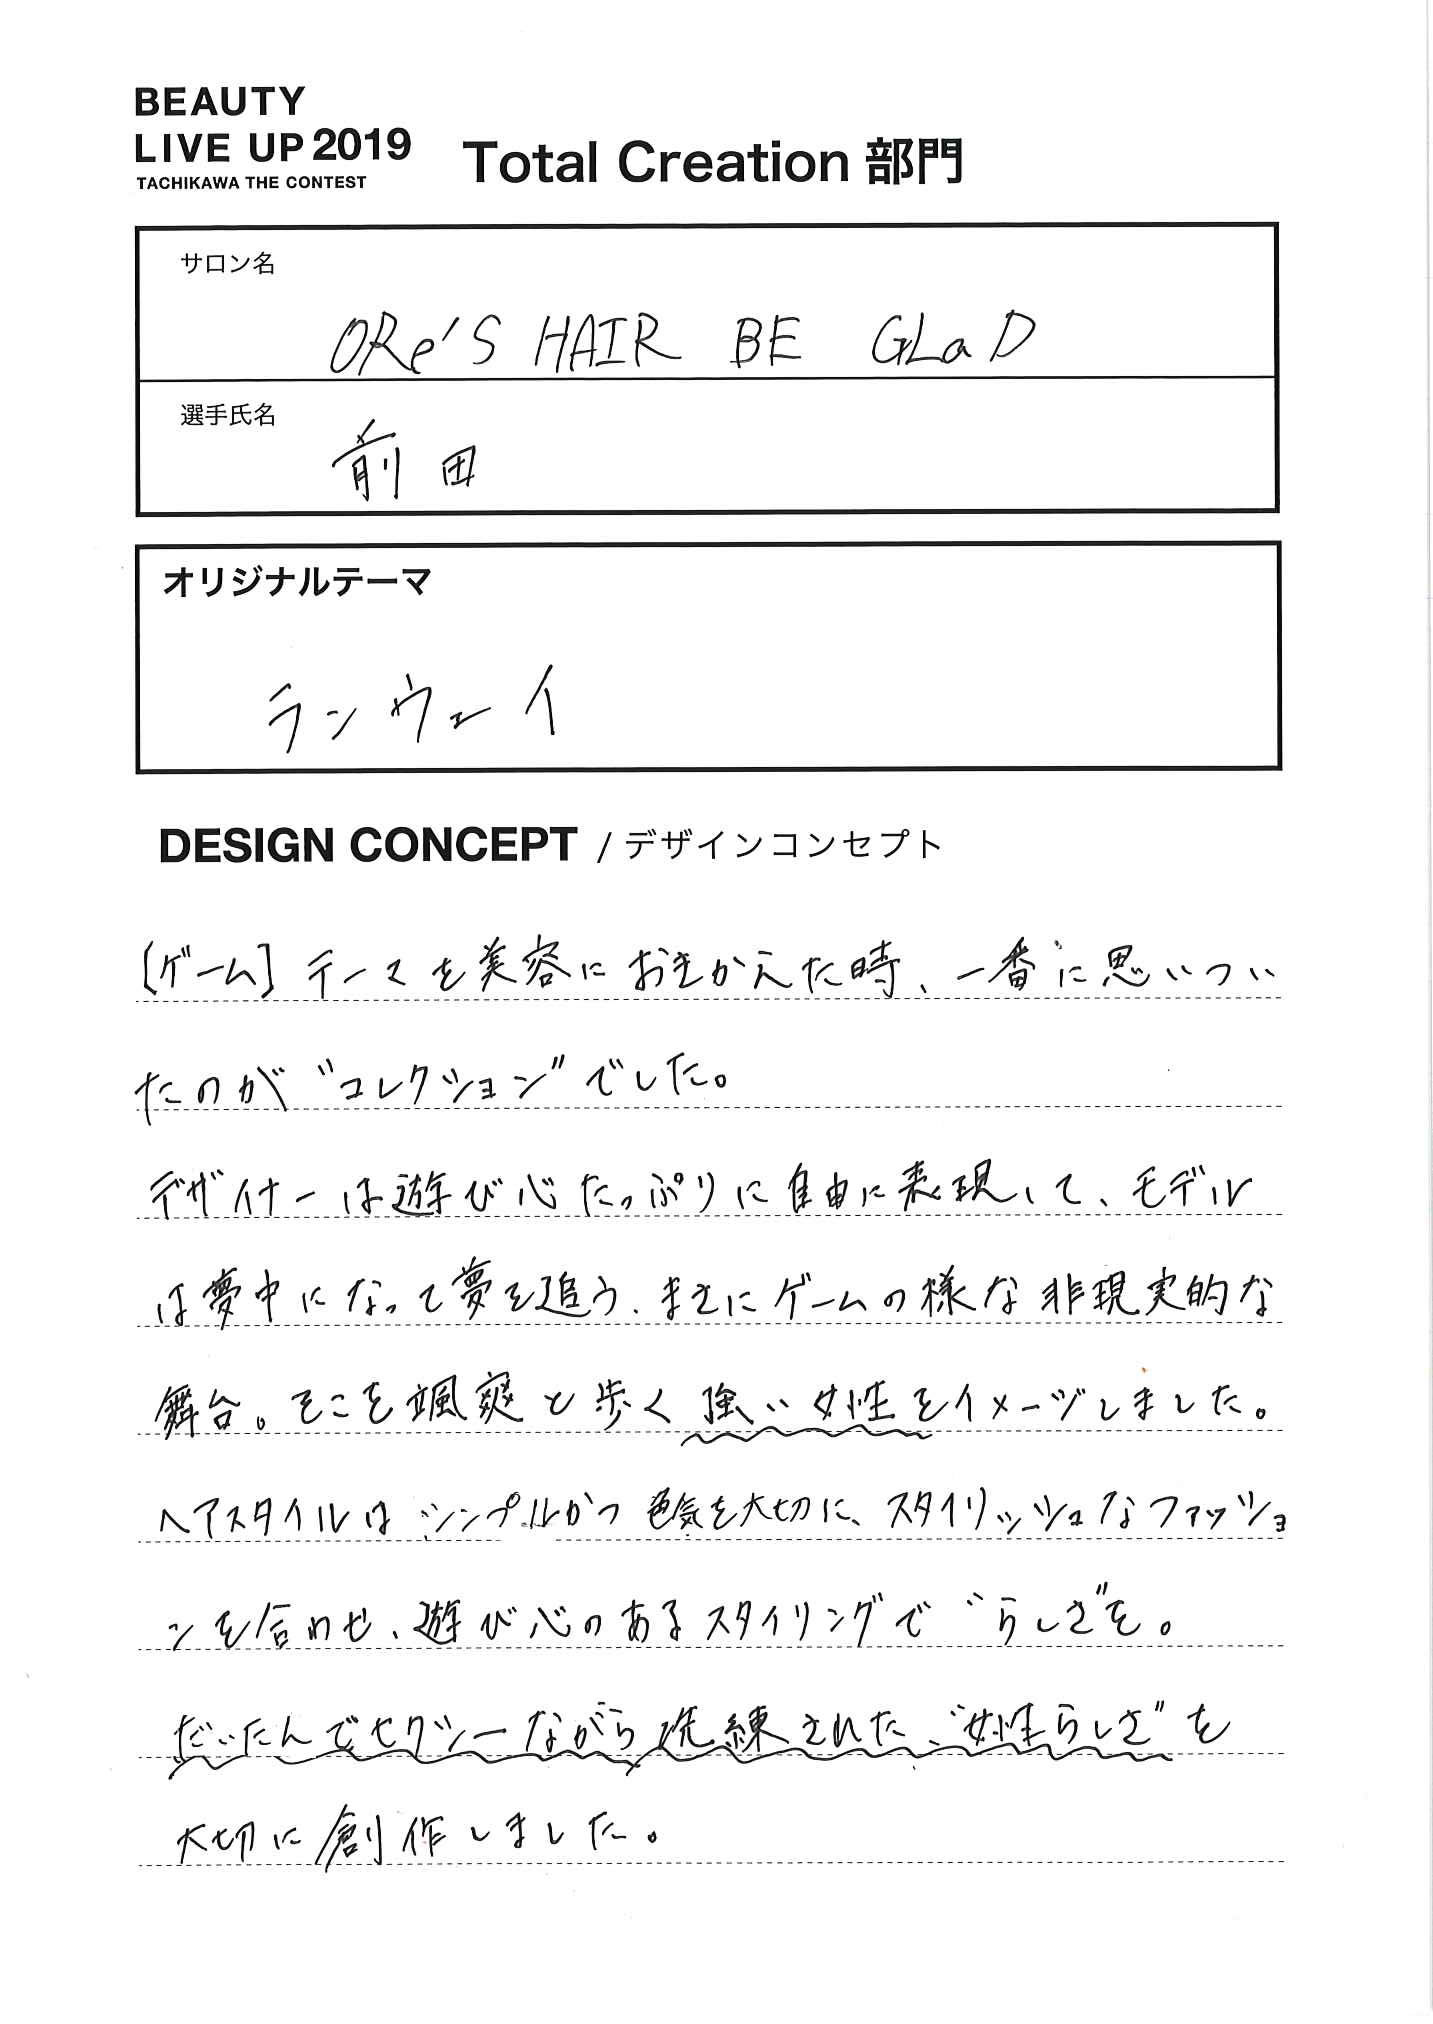 BEAUTY
LIVE UP 2019
TACHIKAWA THE CONTEST
Total Creation 部門
サロン名
ORe'S HAIR BE GLaD
選手氏名
前田
オリジナルテーマ
ランウェイ
DESIGN CONCEPT / デザインコンセプト
[ゲーム] テーマを美容におきかえた時、一番に思いつい
たのが"コレクション"でした。
デザイナーは遊び心たっぷりに自由に表現して、モデル
は夢中になって夢を追う、まさにゲームの様な非現実的な
舞台。そこを颯爽と歩く強い女性をイメージしました。
ヘアスタイルはシンプルかつ色気を大切に、スタイリッシュなファッショ
ンを合わせ、遊び心のあるスタイリングで"らしさ"を。
だいたんでセクシーながら洗練された、"女性らしさ"を
大切に創作しました。